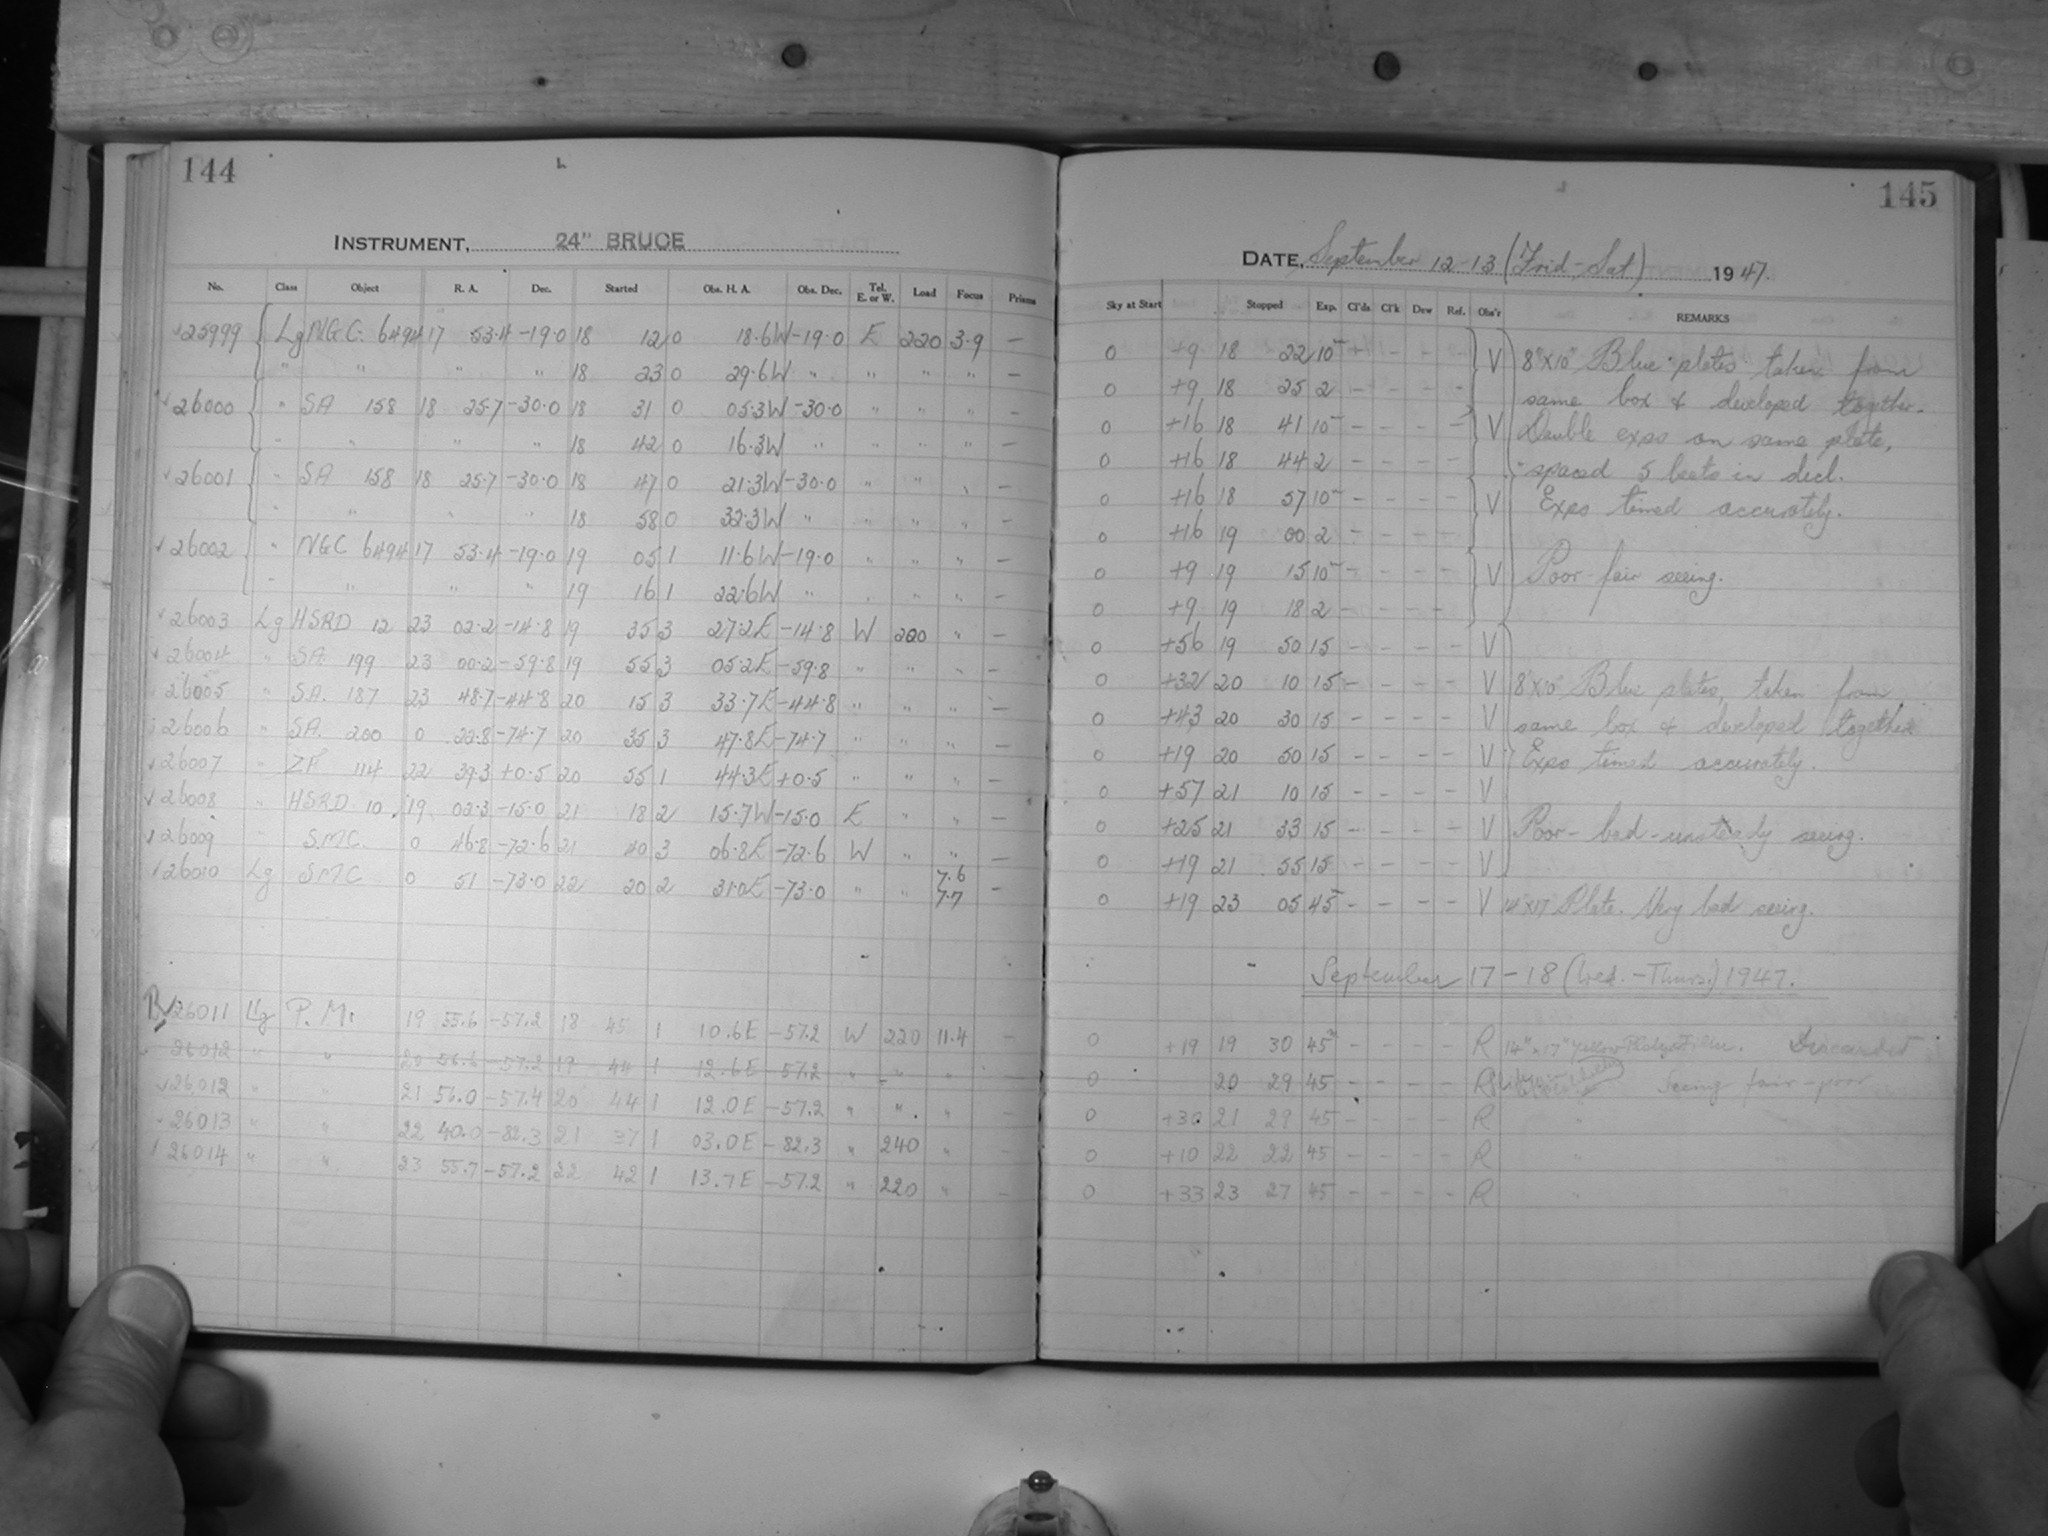 144
INSTRUMENT, 24" BRUCE
No. Class Object R. A. Dec. Started Obs. H. A. Obs. Dec. Tel. E. or W. Load Focus Prisms
√25999 Lg NGC. 6494 17 53.4 -19.0 18 12 0 18.6W -19.0 E 220 3.9 —
" " " " 18 23 0 29.6W " " " " —
√26000 " SA 158 18 25.7 -30.0 18 31 0 05.3W -30.0 " " " —
" " " " 18 42 0 16.3W " " " " —
√26001 " SA 158 18 25.7 -30.0 18 47 0 21.3W -30.0 " " " —
" " " " 18 58 0 32.3W " " " " —
√26002 " NGC 6494 17 53.4 -19.0 19 05 1 11.6W -19.0 " " " —
" " " " 19 16 1 22.6W " " " " —
√26003 Lg HSRD 12 23 02.2 -14.8 19 35 3 27.2E -14.8 W 220 " —
√26004 " SA. 199 23 00.2 -59.8 19 55 3 05.2E -59.8 " " " —
26005 " SA. 187 23 48.7 -44.8 20 15 3 33.7E -44.8 " " " —
26006 " SA. 200 0 22.8 -74.7 20 35 3 47.8E -74.7 " " " —
√26007 " ZF 114 22 39.3 +0.5 20 55 1 44.3E +0.5 " " " —
√26008 " HSRD 10 19 02.3 -15.0 21 18 2 15.7W -15.0 E " " —
√26009 SMC. 0 46.8 -72.6 21 40 3 06.8E -72.6 W " " —
√26010 Lg SMC 0 51 -73.0 22 20 2 31.0E -73.0 " " 7.6 7.7 —
√26011 Lg P.M. 19 55.6 -57.2 18 45 1 10.6E -57.2 W 220 11.4 —
26012 " " 20 56.6 -57.2 19 44 1 12.6E -57.2 " " " —
√26012 " " 21 56.0 -57.4 20 44 1 12.0E -57.2 " " " —
26013 " " 22 40.0 -82.3 21 37 1 03.0E -82.3 " 240 "
26014 " " 23 55.7 -57.2 22 42 1 13.7E -57.2 " 220 " —
145
DATE, September 12-13 (Frid-Sat) 1947.
Sky at Start Stopped Exp. Cl'ds Cl'k Dew Ref. Obs'r REMARKS
0 +9 18 22 10 - - - - V 8"x10" Blue plates taken from
0 +9 18 25 2 - - - - same box & developed together.
0 +16 18 41 10 - - - - V Double expo on same plate,
0 +16 18 44 2 - - - - spaced 5 beats in decl.
0 +16 18 57 10 - - - - V Expo timed accurately.
0 +16 19 00 2 - - - -
0 +9 19 15 10 - - - - V Poor-fair seeing.
0 +9 19 18 2 - - - -
0 +56 19 50 15 - - - - V
0 +32 20 10 15 - - - - V 8"x10" Blue plates, taken from
0 +43 20 30 15 - - - - V same box & developed together
0 +19 20 50 15 - - - - V Expo timed accurately.
0 +57 21 10 15 - - - - V
0 +25 21 33 15 - - - - V Poor-bad-unsteady seeing.
0 +19 21 55 15 - - - - V
0 +19 23 05 45 - - - - V 14"x17" Plate. Very bad seeing.
September 17-18 (Wed.-Thurs.) 1947.
0 +19 19 30 45 - - - - R 14"x17" Yellow Discarded
0 20 29 45 - - - - R Seeing fair-poor
0 +30 21 29 45 - - - - R "
0 +10 22 22 45 - - - - R " "
0 +33 23 27 45 - - - - R " "